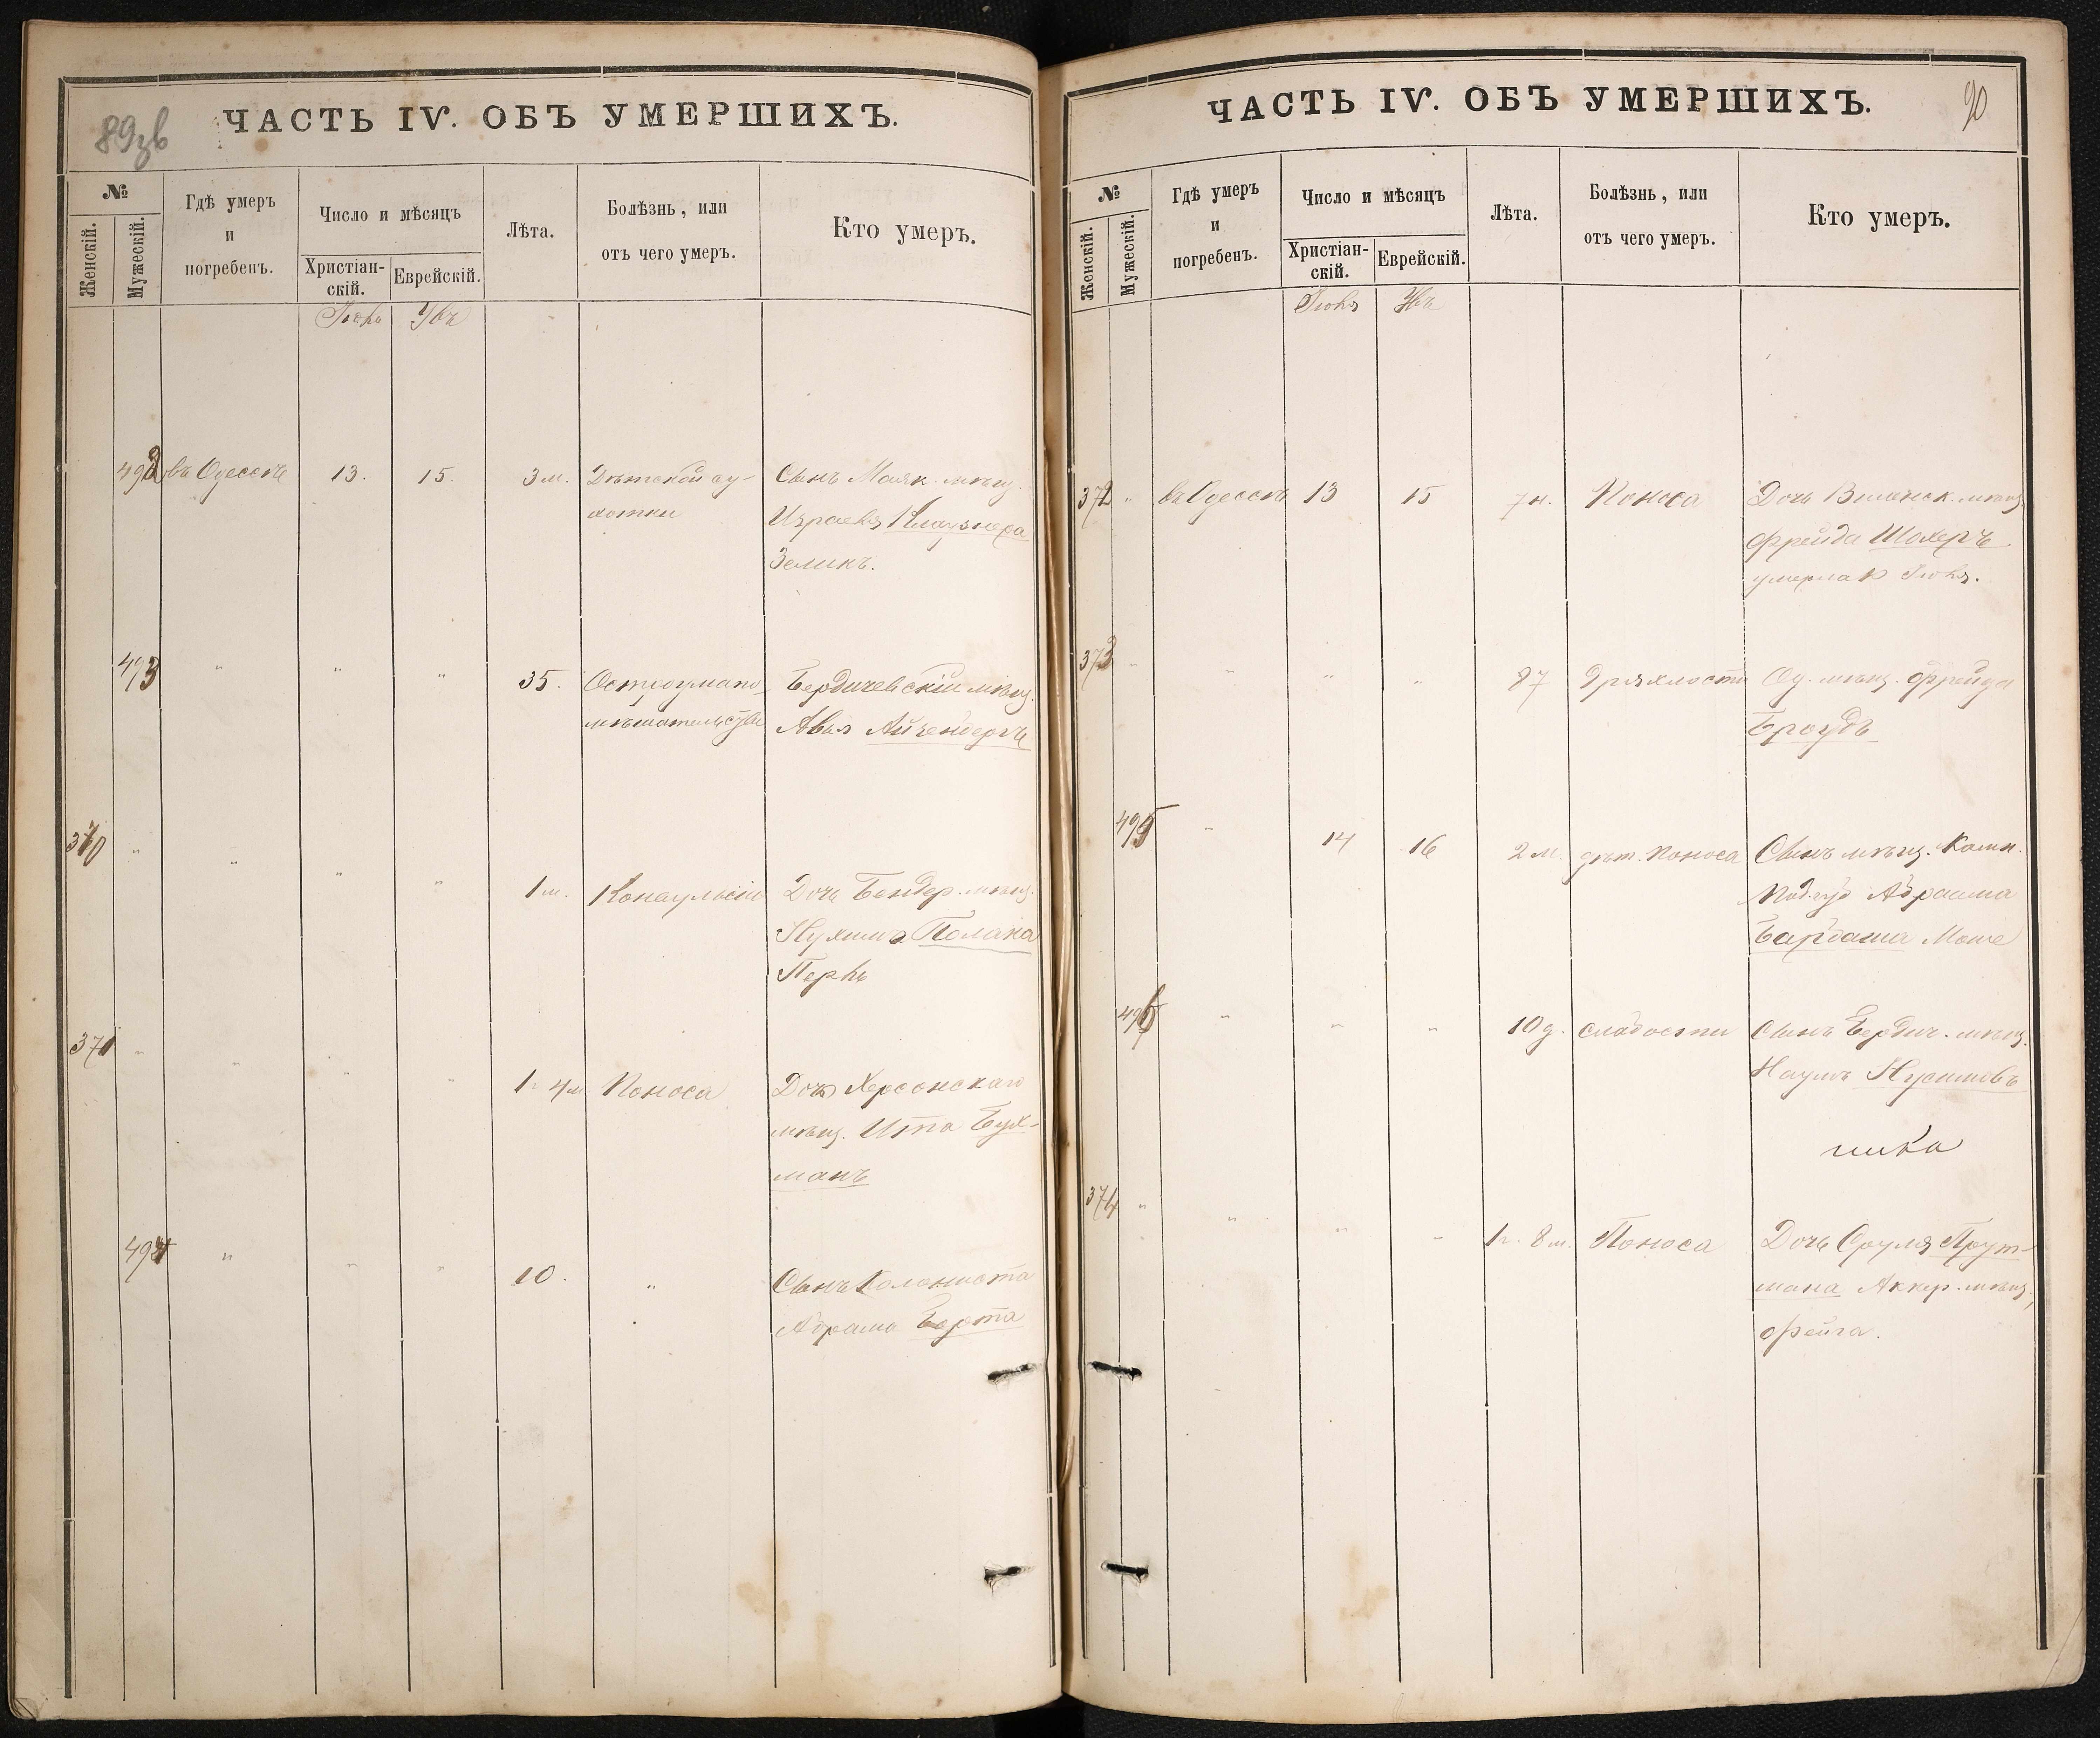 89зв
ЧАСТЬ IV. ОБЪ УМЕРШИХЪ.
№
Женскій.
Мужескій.
Гдѣ умеръ
и
погребенъ.
Число и мѣсяцъ
Христіан-
скій.
Еврейскій.
Лѣта.
Болѣзнь, или
отъ чего умеръ.
Кто умеръ.
въ Одессѣ 13. 15. 3 м. Дѣтской су- Сынъ Маяк. мѣщ.
хотки Израеля Клаузнера
Зеликъ.
493 " " " 35. Бердичевскій мѣщ.
Айзенбергъ
370 " " " " 1 м. Дочь Бендер. мѣщ.
Нухима Полака
Перль
371 " " " " 1 г. 4 м. Поноса Дочь Херсонскаго
мѣщ. Ита Бух-
манъ
494 " " " 10. " Сынъ Колониста
Абрама Берта
ЧАСТЬ IV. ОБЪ УМЕРШИХЪ.
90
№
Женскій.
Мужескій.
Гдѣ умеръ
и
погребенъ.
Число и мѣсяцъ
Христіан-
скій.
Еврейскій.
Лѣта.
Болѣзнь, или
отъ чего умеръ.
Кто умеръ.
372 " въ Одессѣ 13 15 7 н. Поноса Дочь мѣщ.
Фрейда Шохеръ
умерла
373 " " " " 87 Дряхлости Од. мѣщ. Фрейда
Броудъ
495 " 14 16 2 м. дѣт. поноса Сынъ мѣщ. Камн.
Под. губ Абраама
Барбаша Моше
496 " " " 10 д. слабости Сынъ Бердич. мѣщ.
374 " " " " 1 г. 8 м. Поноса Дочь Сруля Прут-
мана Аккер. мѣщ.,
Фейга.